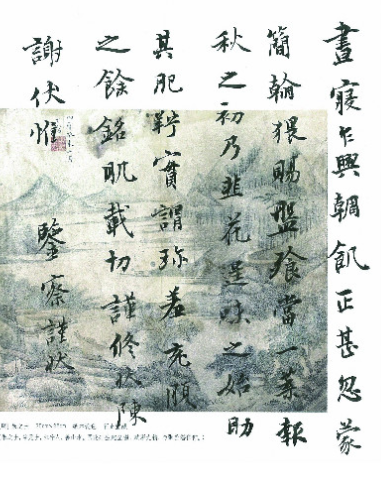 晝寢乍興輖飢正甚忽蒙
簡翰猥賜盤飧當一葉報
秋之初乃韭花逞味之始助
其肥羜實謂珍羞充腹
之餘銘肌載切謹修狀陳
謝伏惟鑒察謹狀